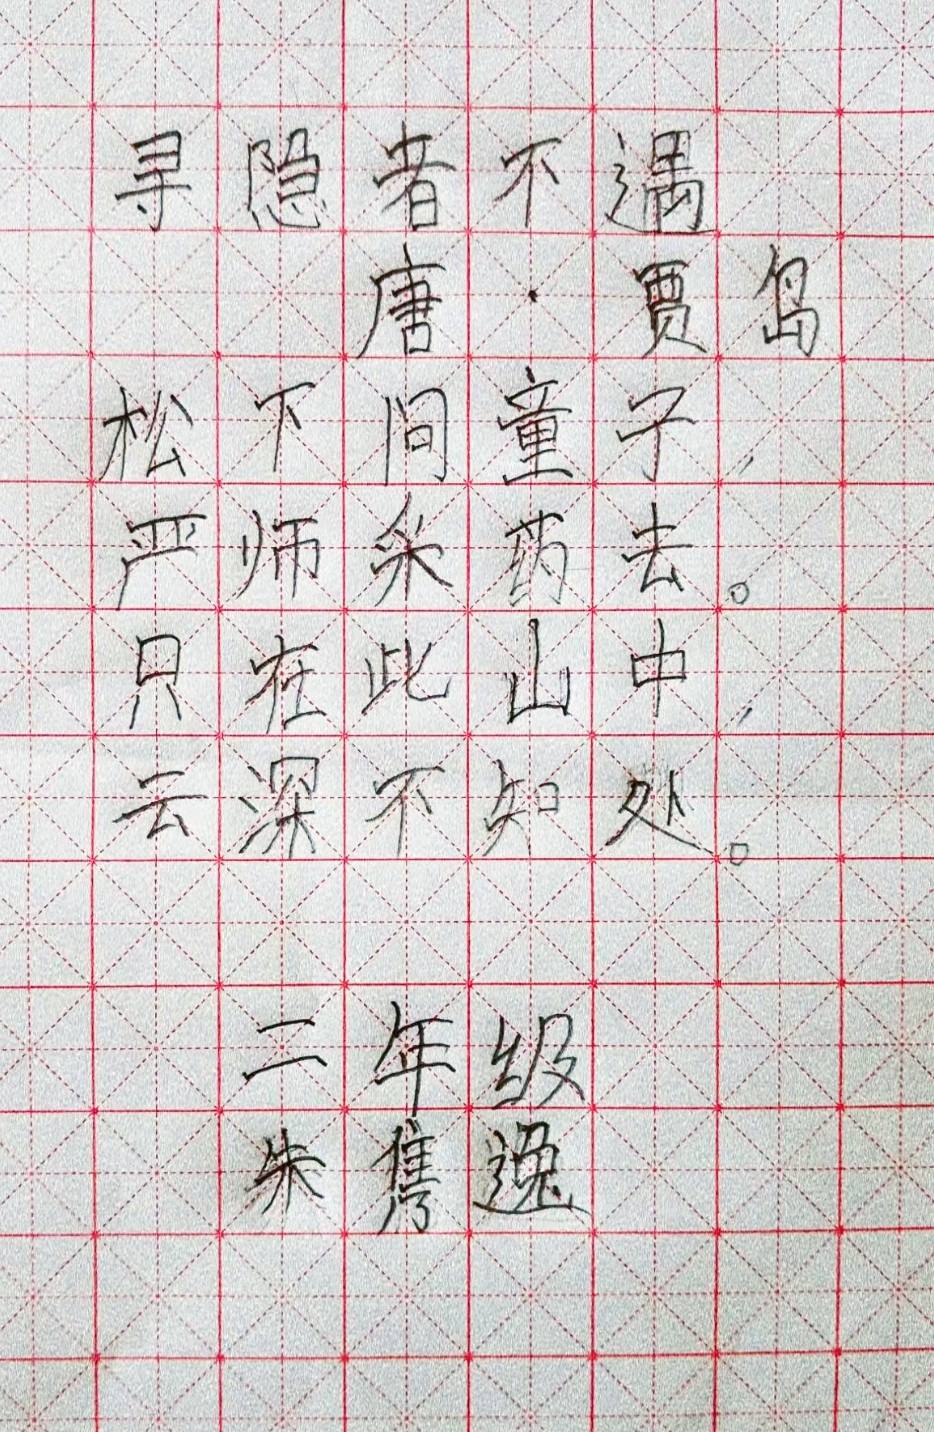 寻隐者不遇
唐·贾岛
松下问童子，
严师采药去。
只在此山中，
云深不知处。
二年级
朱隽逸